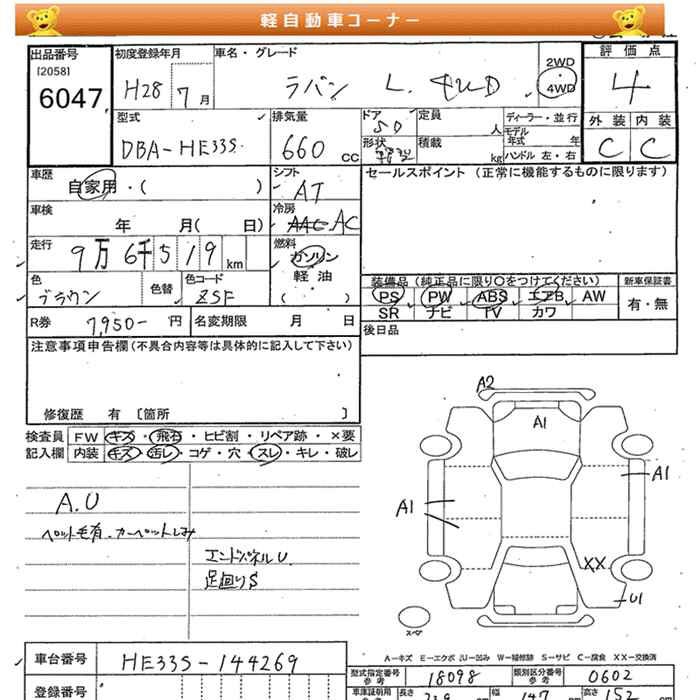 軽自動車コーナー
出品番号 初度登録年月 車名・グレード 評価点
[2058] H28 7月 ラパン L 4WD 2WD 4WD 4
6047
型式 排気量 ドア 定員 ディーラー・並行 外装 内装
DBA-HE33S 660 cc 5D 人 モデル年式 年 C C
形状 積載 kg ハンドル 左・右
車歴 シフト セールスポイント (正常に機能するものに限ります)
自家用・( ) AT
車検 冷房
年 月( 日) AAC AC
走行 燃料
9万6千519km ガソリン
軽油
色 色替 色コード ( ) 装備品 (純正品に限り○をつけてください) 新車保証書
ブラウン ZSF PS PW ABS エアB AW 有・無
SR ナビ TV カワ
R券 7,950- 円 名変期限 月 日 後日品
注意事項申告欄(不具合内容等は具体的に記入して下さい)
修復歴 有 [箇所 ]
検査員 FW キズ・飛石・ヒビ割・リペア跡・×要
記入欄 内装 キズ・汚レ・コゲ・穴・スレ・キレ・破レ
A2
A1
A1
A1
A.U
ペット毛有.カーペットしみ
エンドパネルU.
足廻りS
XX
U1
スペア
A-キズ E-エクボ U-凹み W-補修跡 S-サビ C-腐食 XX-交換済
車台番号 HE33S-144269
型式指定番号 参考 18098 類別区分番号 参考 0602
登録番号 車庫証明用 参考 長さ 幅 147 高さ 152